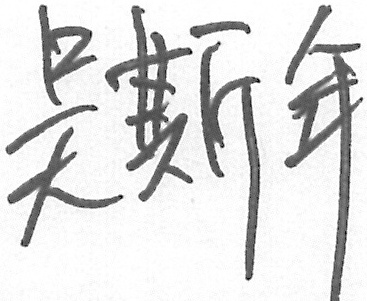 吴斯年